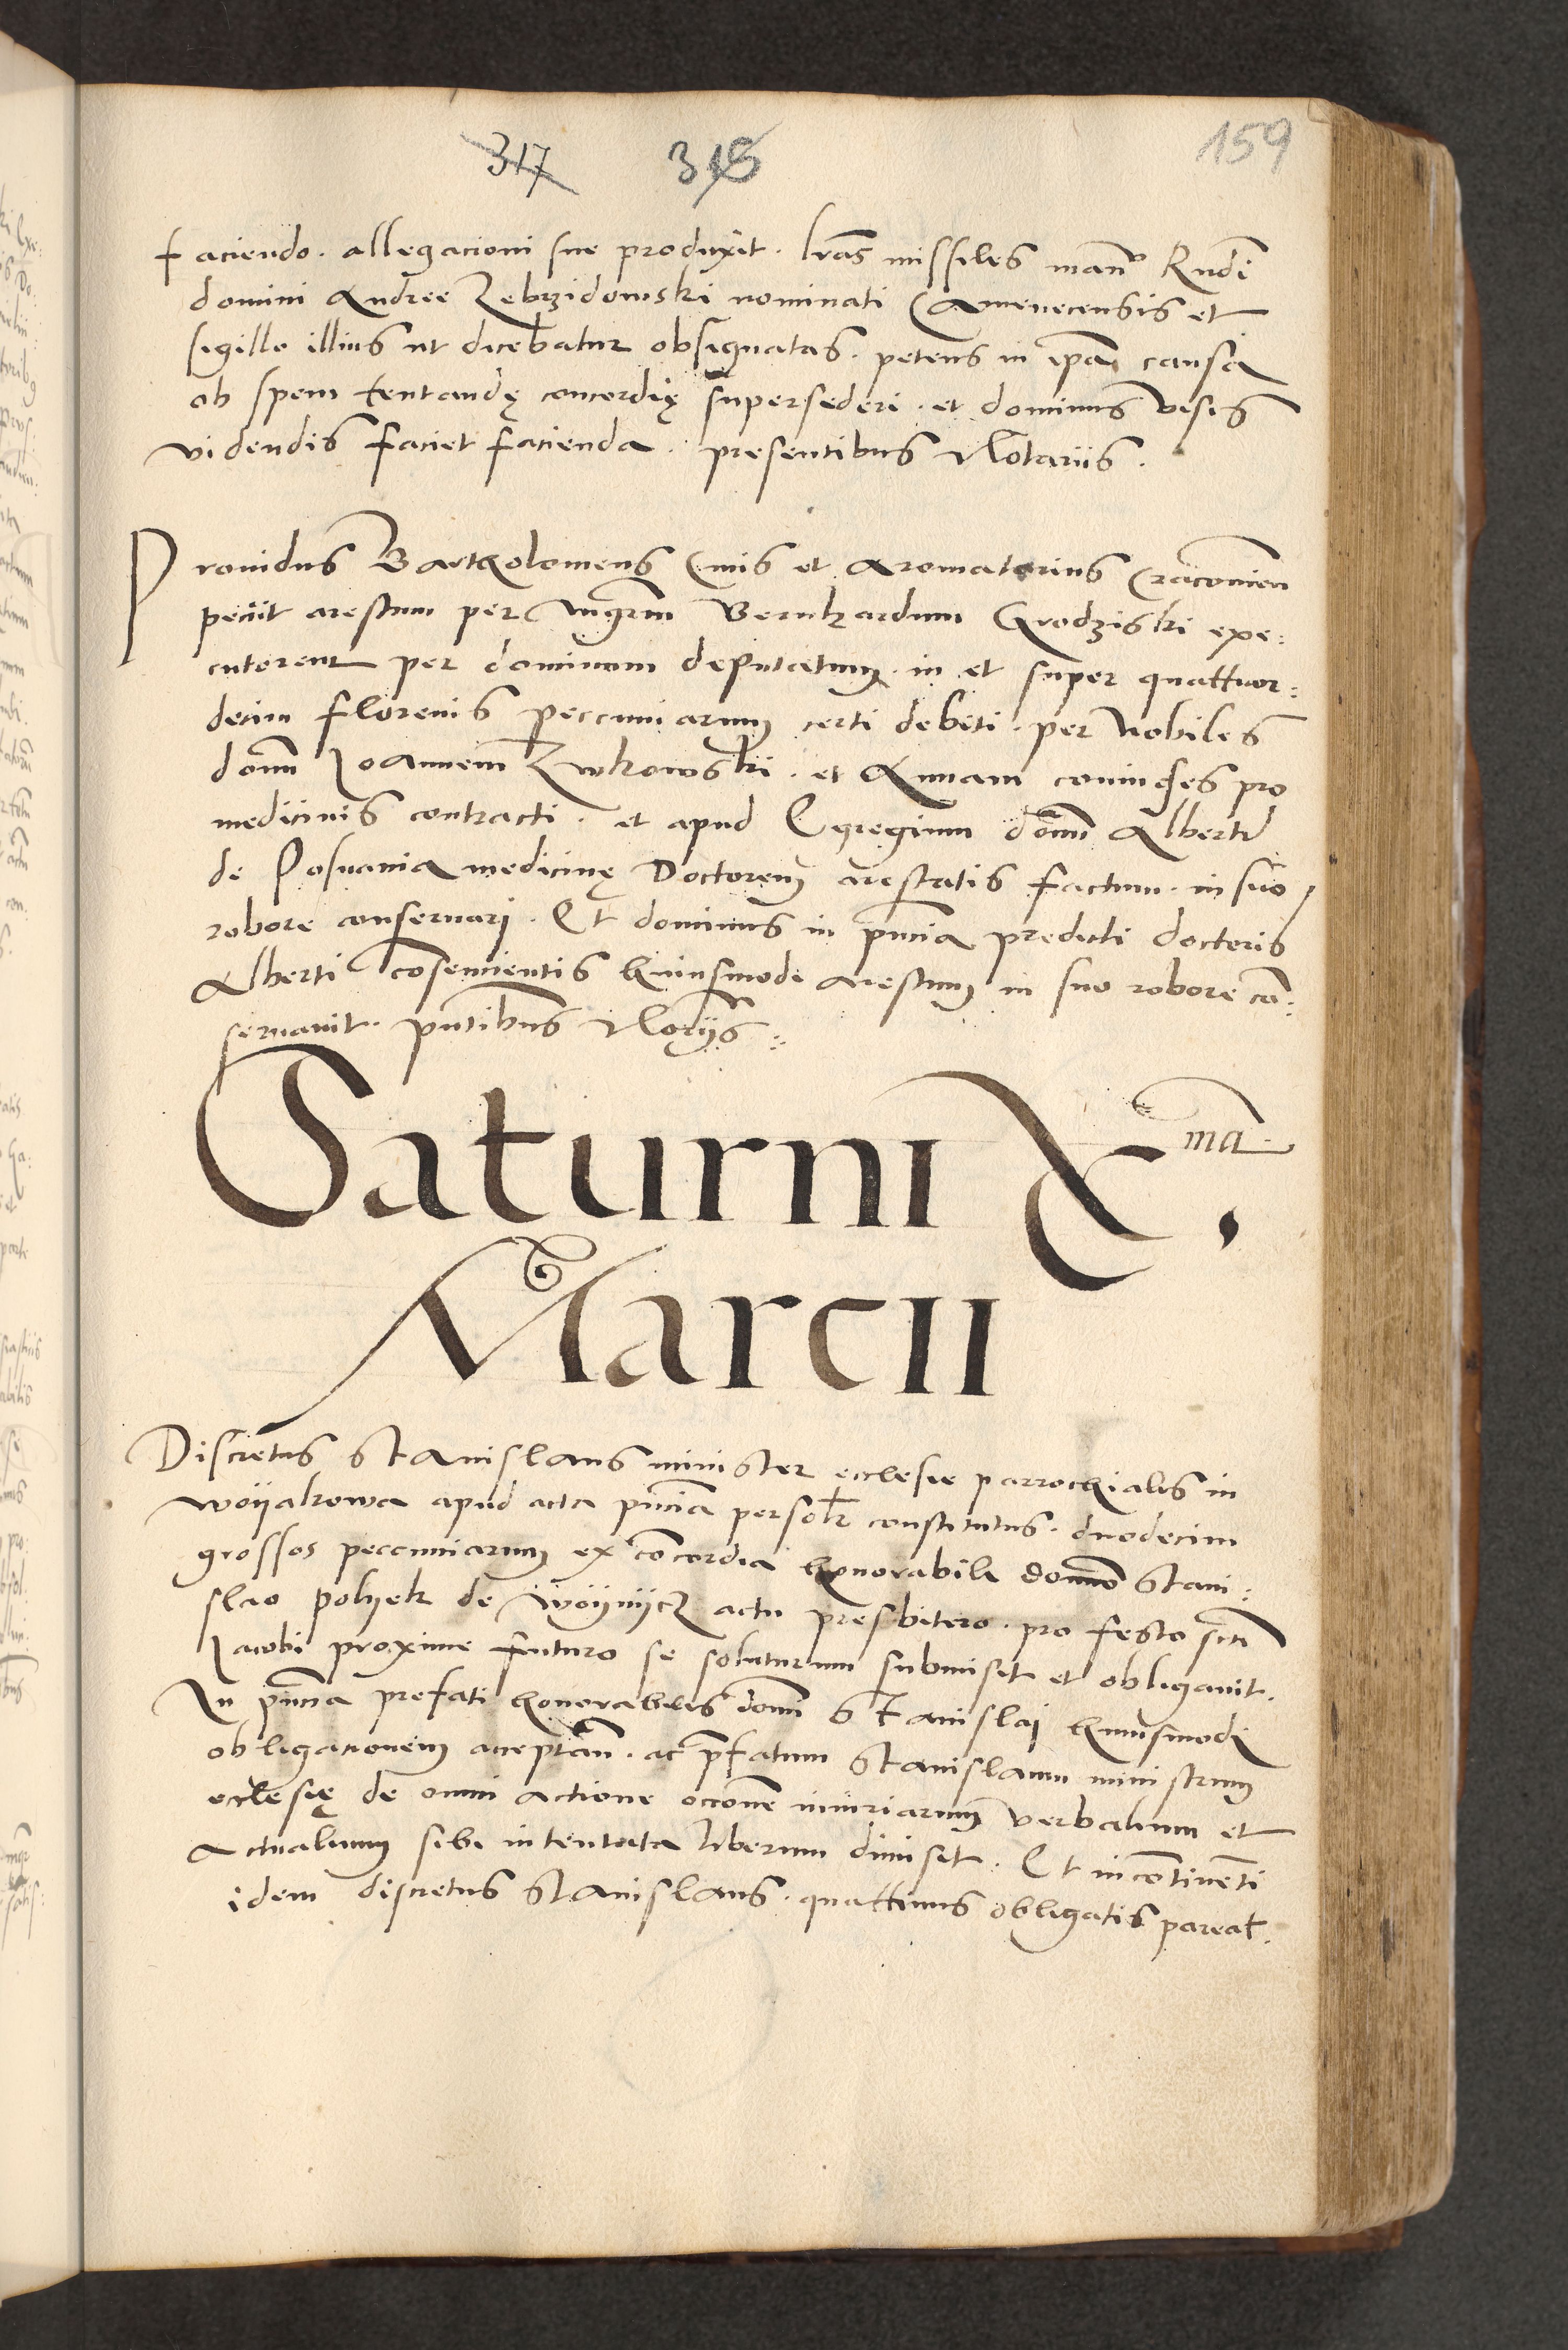 317 318 159
faciendo. allegacioni sue produxit. lr̃as missiles man˜ Rndi
domini Andree Zebrzidowski nominati Camenecensis et
sigillo illius ut dicebatur obsignatas. petens in ipa causa
ob spem tentandę concordię supersederi. et dominus visis
videndis faciet facienda. presentibus Notariis.
Providus Bartholomeus Civis et Aromatorius Cracovien
peciit arestum per Mgrm Bernhardum Grodziski exe:
cutorem per dominum deputatum. in et super quattuor:
decim florenis peccuniarum certi debiti. per Nobiles
domn Joannem Zwkowski. et Annam coniuges pro
medicinis contracti. et apud Egregium domn Albertu
de Posnania medicinę Doctorem arestatis factum. in suo
robore conservari. Et dominus in pn̄cia predicti doctoris
Alberti cōsencientis huiusmodi arestum in suo robore cō:
servavit. pn̄tibus Norijs:
Saturni Xma.
Marcii
Discretus Stanislaus minister ecclesie parrochialis in
Woyakowa apud acta pn̄cia persolr constitutus. duodecim
grossos peccuniarum ex cōcordia honorabili domno Stani:
slao polyek de Woyniycz actu presbitero. pro festo scti
Jacobi proxime futuro se soluturum submisit et obligavit.
In pn̄cia prefati honorabilis domi Stanislai huiusmodi
obligacionem acceptan̄. ac p̄fatum Stanislaum ministrum
ecclesię de omni actione occone iniuriarum verbalium et
Actualium sibi intentata liberum dimisit. Et incōtinēti
idem discretus Stanislaus. quattinus obligatis pareat.